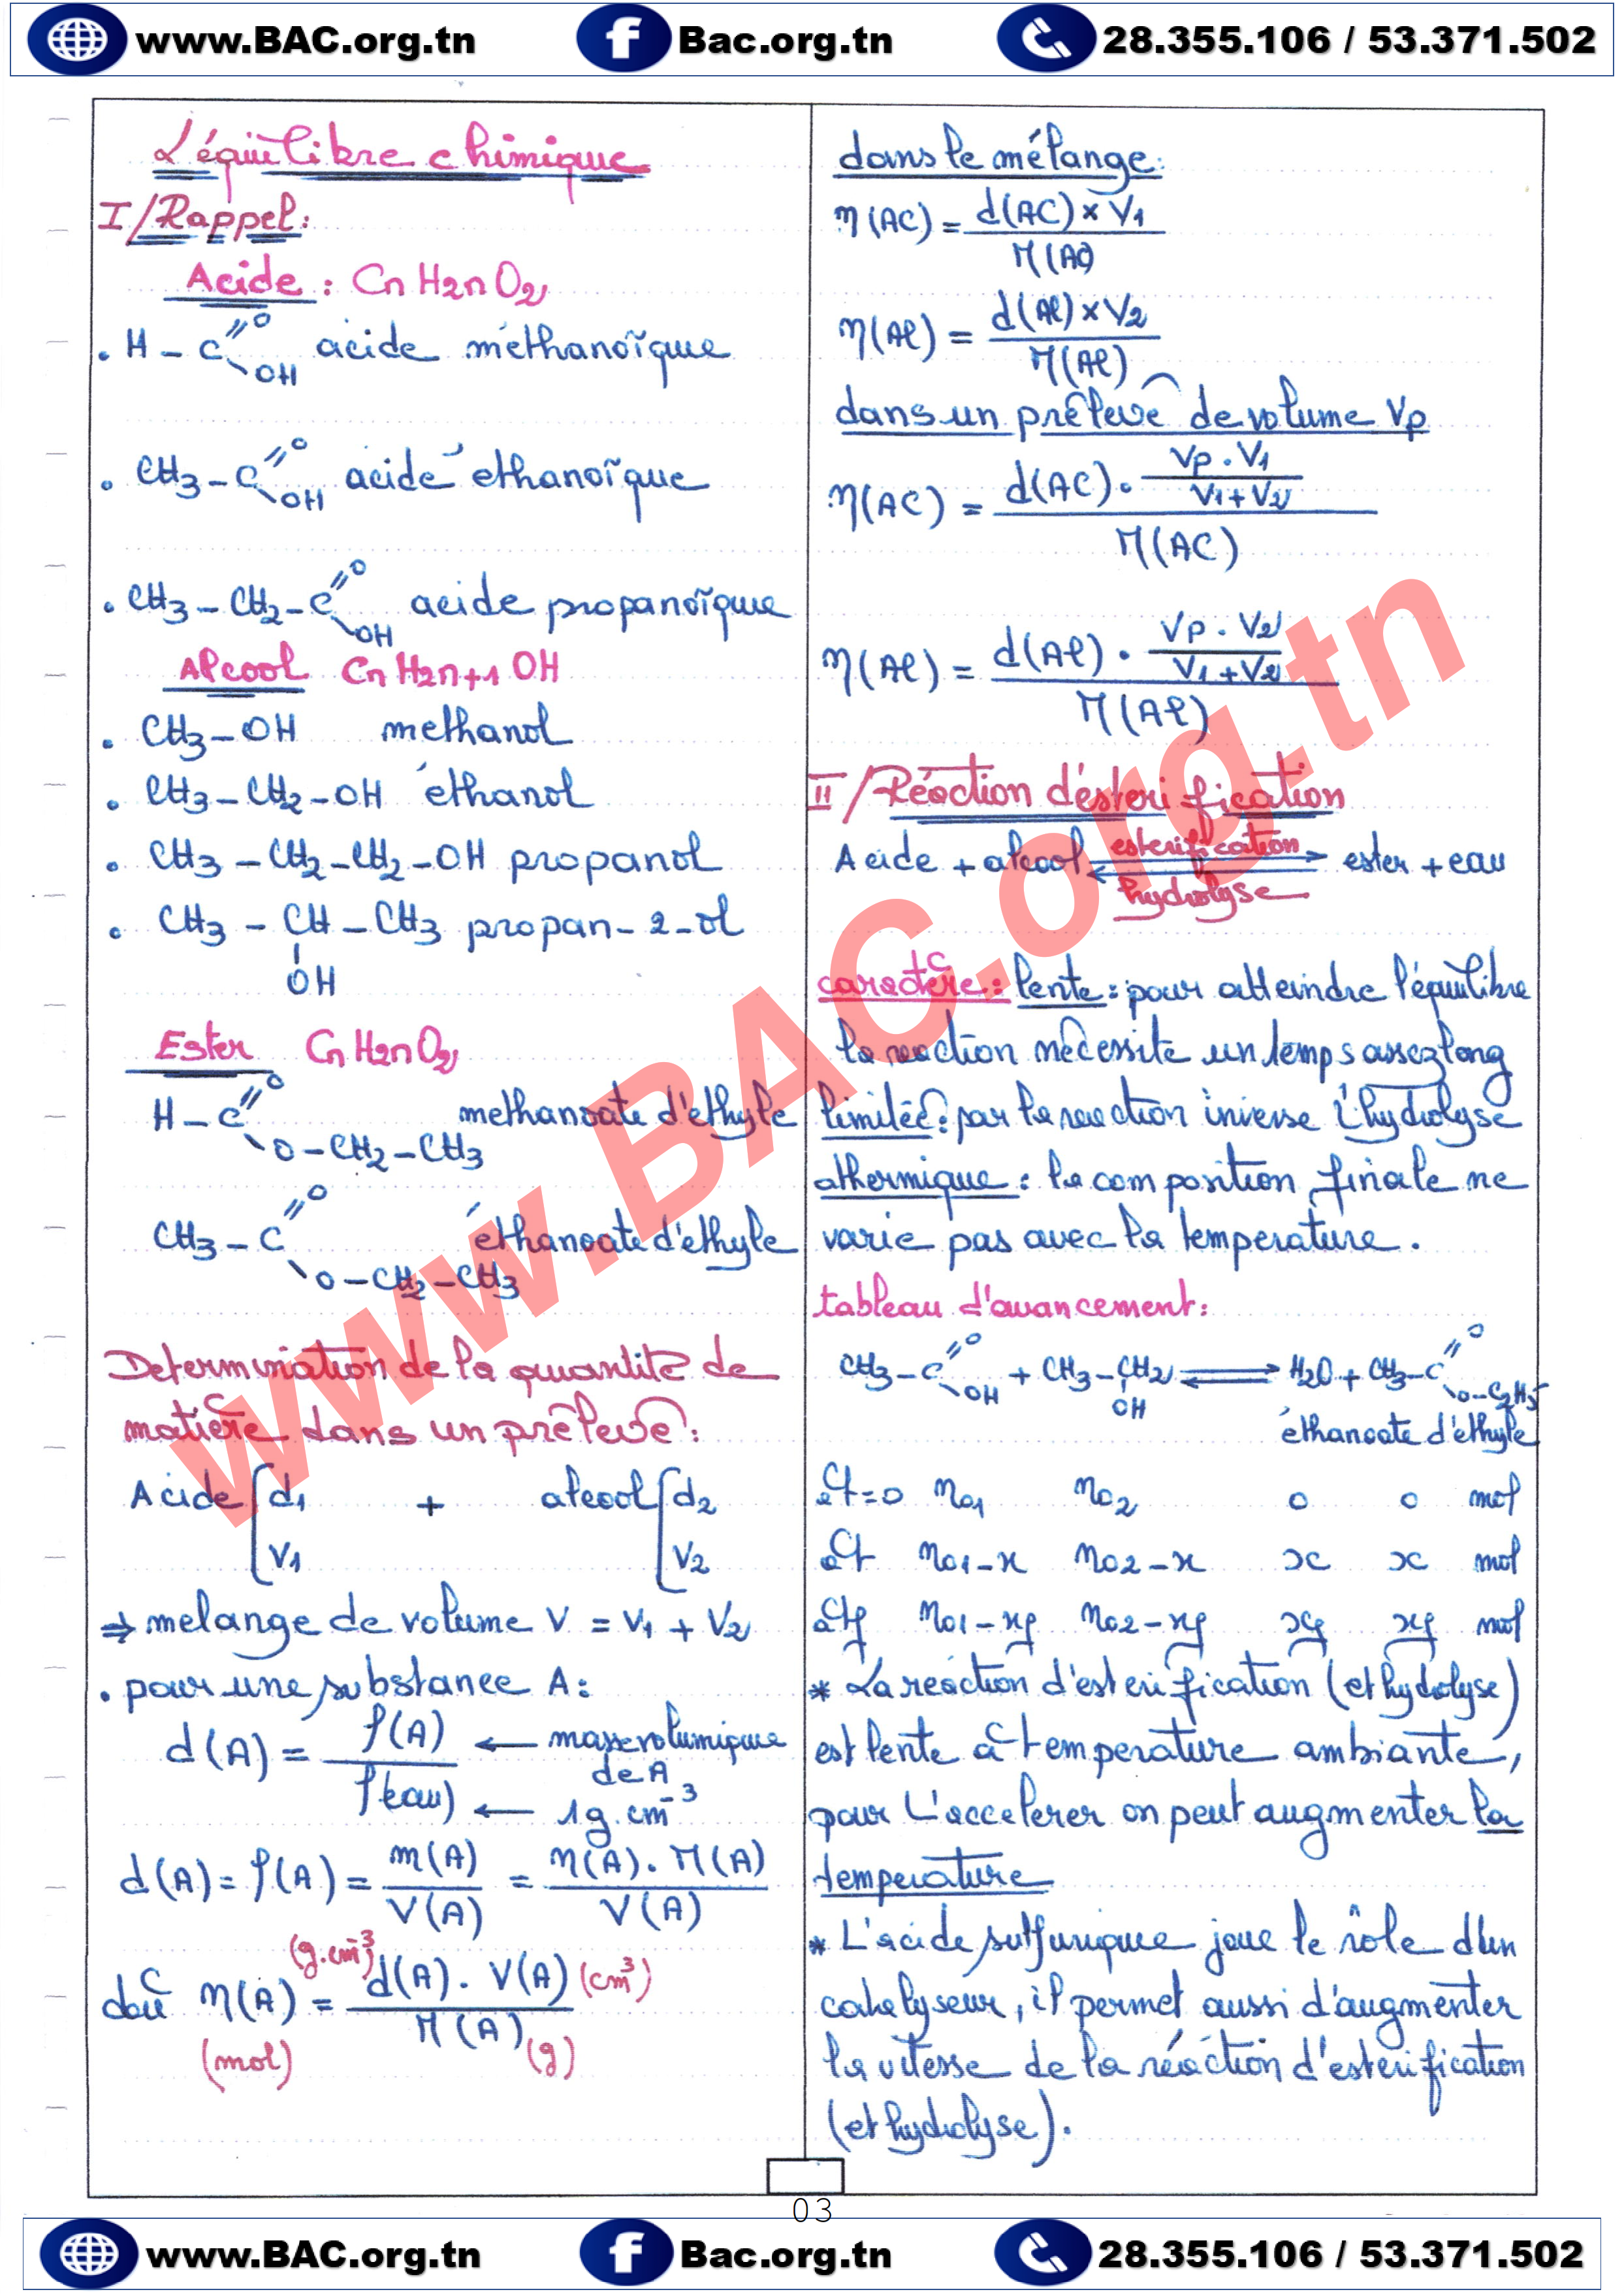 www.BAC.org.tn
Bac.org.tn
28.355.106 / 53.371.502
L'équilibre chimique
I/Rappel:
Acide : CnH2nO2
. H - C =O OH acide méthanoïque
. CH3 - C =O OH acide éthanoïque
. CH3 - CH2 - C =O OH acide propanoïque
Alcool CnH2n+1 OH
. CH3 - OH methanol
. CH3 - CH2 - OH éthanol
. CH3 - CH2 - CH2 - OH propanol
. CH3 - CH - CH3 propan-2-ol
OH
Ester CnH2nO2
H - C =O O - CH2 - CH3 methanoate d'éthyle
CH3 - C =O O - CH2 - CH3 éthanoate d'éthyle
Determination de la quantité de
matière dans un prélevé:
Acide { d1 V1 + alcool { d2 V2
⇒ melange de volume V = V1 + V2
. pour une substance A:
d(A) = ρ(A) / ρ(eau) ← masse volumique de A ← 1g.cm-3
d(A) = ρ(A) = m(A) / V(A) = n(A) . M(A) / V(A)
doù n(A) = d(A) . V(A) / M(A)
(mol) (g.cm-3) (cm3) (g)
dans le mélange:
n(AC) = d(AC) × V1 / M(AC)
n(Al) = d(Al) × V2 / M(Al)
dans un prélevé de volume Vp
n(AC) = d(AC) . (Vp . V1 / V1+V2) / M(AC)
n(Al) = d(Al) . (Vp . V2 / V1+V2) / M(Al)
II/Réaction d'éstérification
Acide + alcool ⇌ ester + eau
esterification
hydrolyse
caractère: lente: pour atteindre l'équilibre
la reaction nécessite un temps assez long
limitée: par la reaction inverse l'hydrolyse
athermique: la composition finale ne
varie pas avec la temperature.
tableau d'avancement:
CH3 - C =O OH + CH3 - CH2 OH ⇌ H2O + CH3 - C =O O - C2H5
éthanoate d'éthyle
à t=0 n01 n02 0 0 mol
à t n01-x n02-x x x mol
à tf n01-xf n02-xf xf xf mol
* La réaction d'esterification (et hydolyse)
est lente à temperature ambiante,
pour l'accelerer on peut augmenter la
temperature
* L'acide sulfurique joue le rôle d'un
catalyseur, il permet aussi d'augmenter
la vitesse de la réaction d'esterification
(et hydolyse).
www.BAC.org.tn
03
www.BAC.org.tn
Bac.org.tn
28.355.106 / 53.371.502